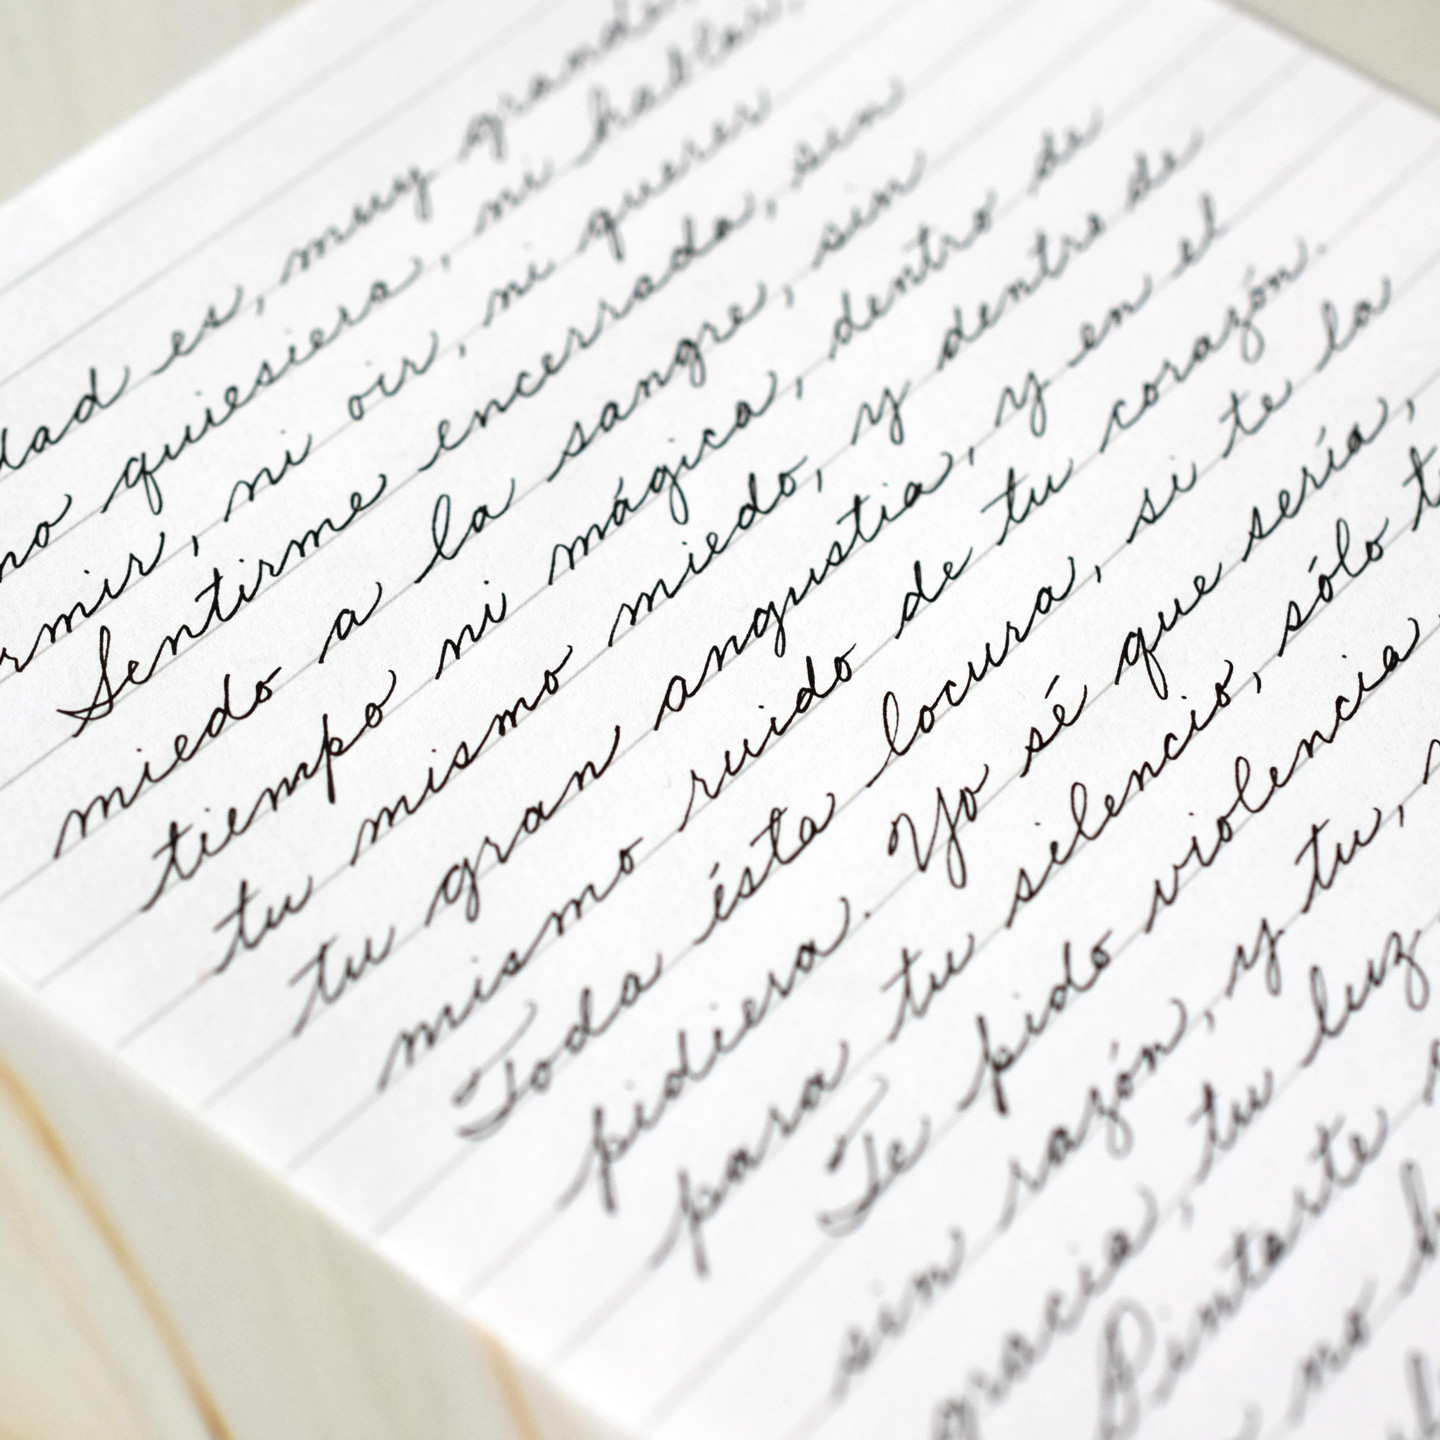 dad es, muy grande,
no quiesiera, ni hablar,
rmir, ni oir, ni querer
Sentirme encerrada, sin
miedo a la sangre, sin
tiempo ni mágica, dentro de
tu mismo miedo, y dentro de
tu gran angustia, y en el
mismo ruido de tu corazón.
Toda ésta locura, si te la
pidiera. Yo sé que sería,
para tu silencio, sólo t
Te pido violencia,
sin razón, y tu,
gracia, tu luz
Pintarte
no